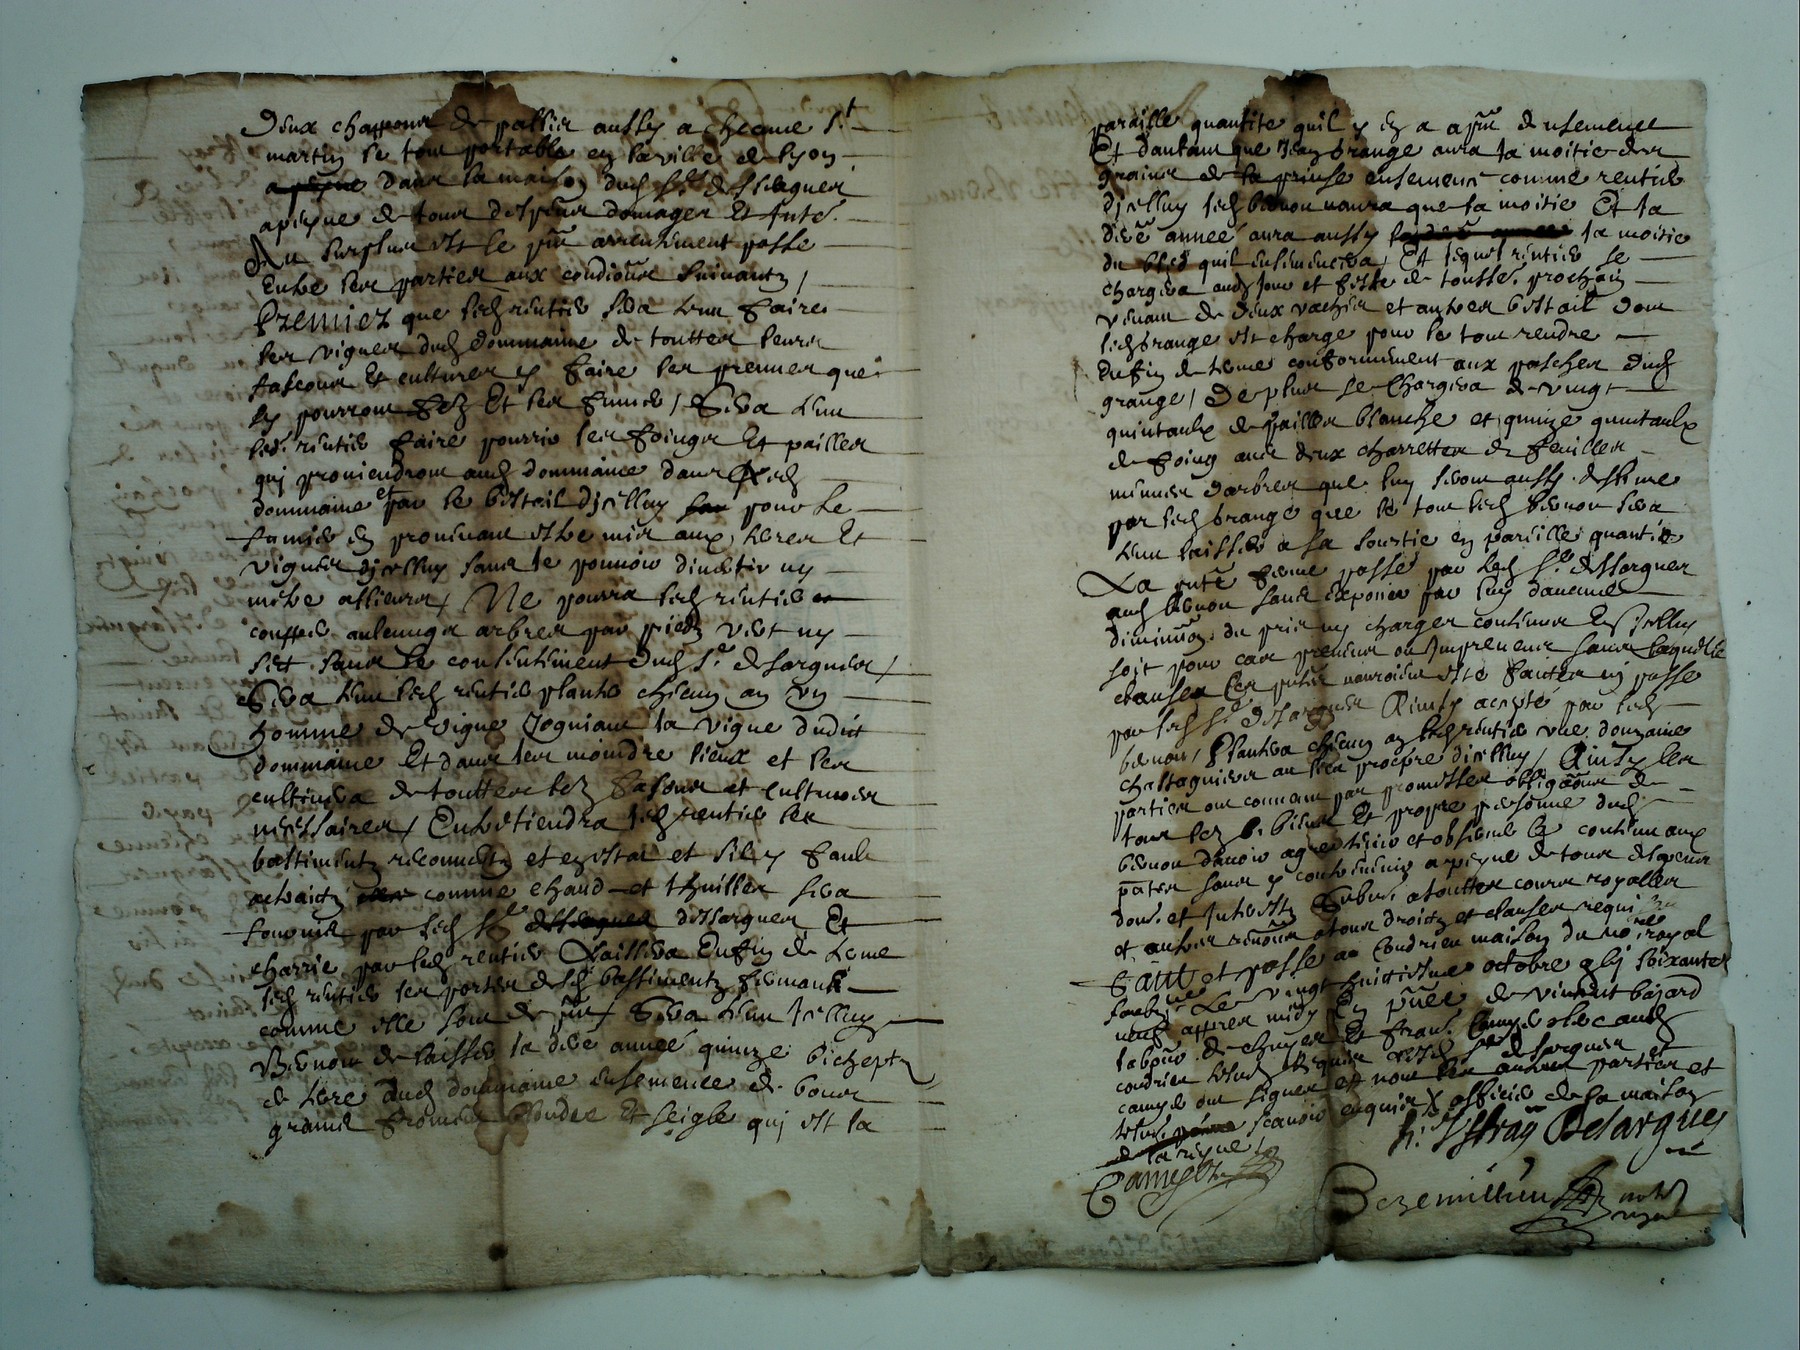 deux chappons de pallier aussy a checune st
martin le tout portable en la ville de lyon
a peyne dans la maison dud sr dessargues
a peyne de tous despens domages et inte.
Au surplus est le pnt arrentement passe
entre les parties aux condions suivants /
Premier que led rentier sera tenu faire
les vignes dud dommaine de touttes leurs
fassons et cultures y faire les premier que
ly pourront fez et les fumer / Sera tenu
led. rentier faire pourrir les foings et pailles
qui proviendront aud dommaine dans led
dommaine et par le bestail dicelluy pour le
fumier en provenant estre mis aux terres et
vignes dicelluy sans le pouvoir divertir ny
mettre allieurs / Ne pourra led rentier
coupper aulcungs arbres par pied vert ny
sect sans le consentement dud sr desargues /
Sera tenu led rentier planter chescun an un
homme de vigne joignant la vigne dudict
dommaine et dans les moindre lieux et les
cultivera de touttes lez fasons et cultures
necessaires / Entretiendra led rentier les
bastiments recouverts et en estat et sil y fault
actraictz comme chaud et thuilles sera
fournis par led sr dessargues et
charrie par led rentier Laissera en fin de terme
led rentier les portes desd bastiments fermant
comme elle sont de pnt / Sera tenu icelluy
Benoit de laisser la dere année quinze bichepts
de terre dud dommaine ensemence de bons
grains froment et seigle qui est la
paraille quantite quil y en a a pnt densemence
Et dautant que Jean grange aura la moitie des
grains de la prinse ensemence comme rentier
dicelluy led benoit naura que la moitie Et la
dere annee aura aussy la moitie
du bled quil ensemencera / Et lequel rentier se
chargera aud jour et feste de tousst. prochain
venant de deux vaches et autres bestail dont
led grange est charge pour le tout rendre
en fin de terme conformement aux pasches dud
grange / De plus se chargera de vingt
quintaulx de pailles blanche et quinze quintaulx
de foing avec deux charrettes de feuilles
menues darbres que luy seront aussy destine
par led grange que le tout led benoit sera
tenu laisser a sa sourtie en pareille quantité
La pnte ferme passé par led sr dessargues
aud benoit sans esperer par luy daucune
diminuon du prix ny charges contenus en icelluy
soit pour cas preveus ou impreveus sans laquelle
clauses les pntes nauroient este faites ny passe
par led sr dessargues Ainsy accepté par led
benoit / Plantera chescun an led rentier une douzaine
chastagniers au lieu propre dicelluy / Ainsy les
parties ont convenu par promesses obligaons de
tous lez biens et propre personne dud
benoit davoir agre tenir et observer le contenu aux
pntes sans y contrevenir a peyne de tous despens
dom. et interestz Submis. a touttes cours royalles
et autres renons a tous droitz et clauses requi
Faict et passe a Condrieu maison du nore royal
soubzne Le vingt huictiesme octobre xvi soixante
neuf appres midy En pnce de vincent bajard
labour. de chuyer et franc. camyer clerc aud
condrieu tesmoins requis lesd sr desargues et
camyer ont signes et non les autres parties et
tesmoin scavoir enquis X officier de la maison
de la reyne
h. Isfrayn Desargues
Camyer
Bezemillien notre
royal